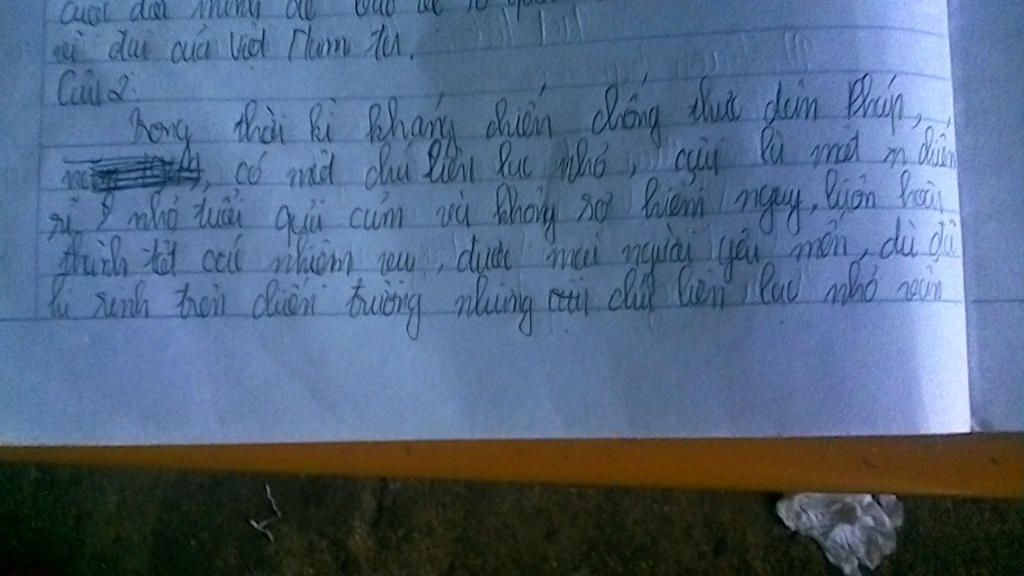 cuộc đời
vĩ đại của Việt Nam ta.
Câu 2:
Trong thời kì kháng chiến chống thực dân Pháp,
, có một chú liên lạc nhỏ, cậu là một chiến
sĩ nhỏ tuổi quả cảm và không sợ hiểm nguy, luôn hoàn
thành tốt các nhiệm vụ, được mọi người yêu mến, dù đã
hi sinh trên chiến trường nhưng chú liên lạc nhỏ vẫn